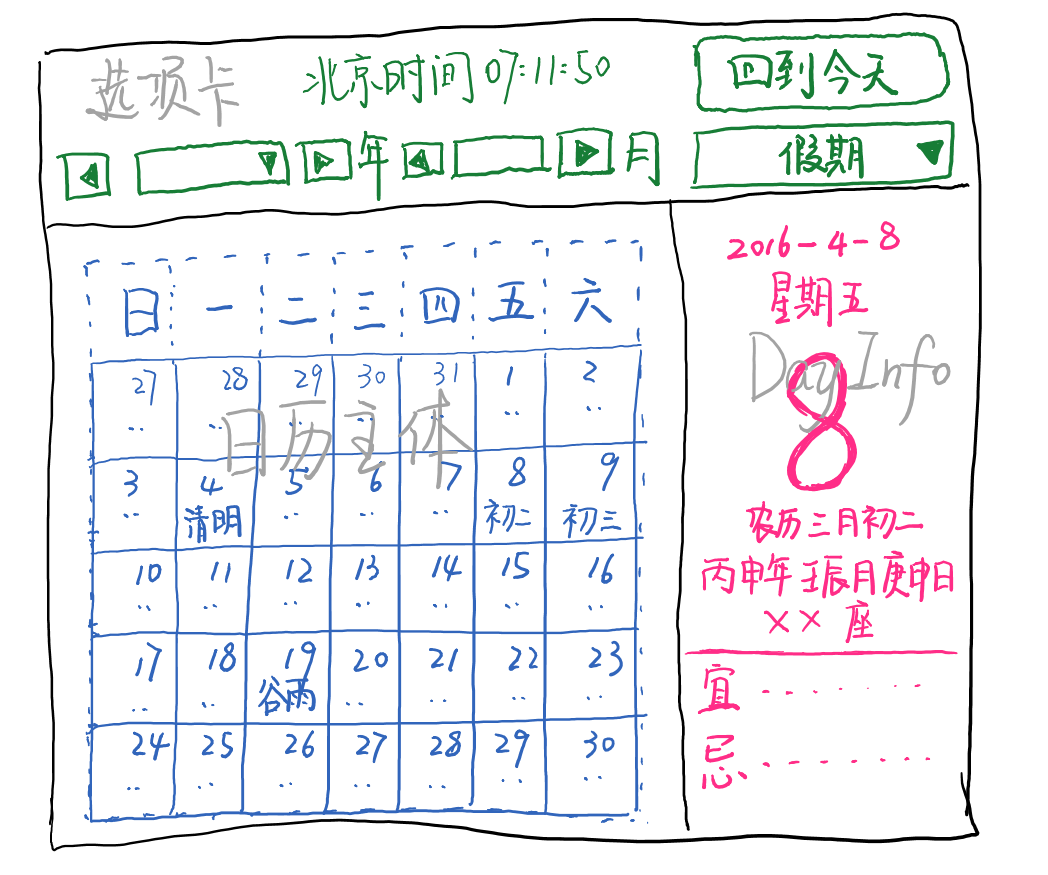 选项卡 北京时间 07:11:50 回到今天
年 月 假期
日 一 二 三 四 五 六
27 28 29 30 31 1 2
日历主体
3 4 5 6 7 8 9
清明 初二 初三
10 11 12 13 14 15 16
17 18 19 20 21 22 23
谷雨
24 25 26 27 28 29 30
2016-4-8
星期五
DayInfo
8
农历三月初二
丙申年壬辰月庚申日
×× 座
宜 .......
忌 ........